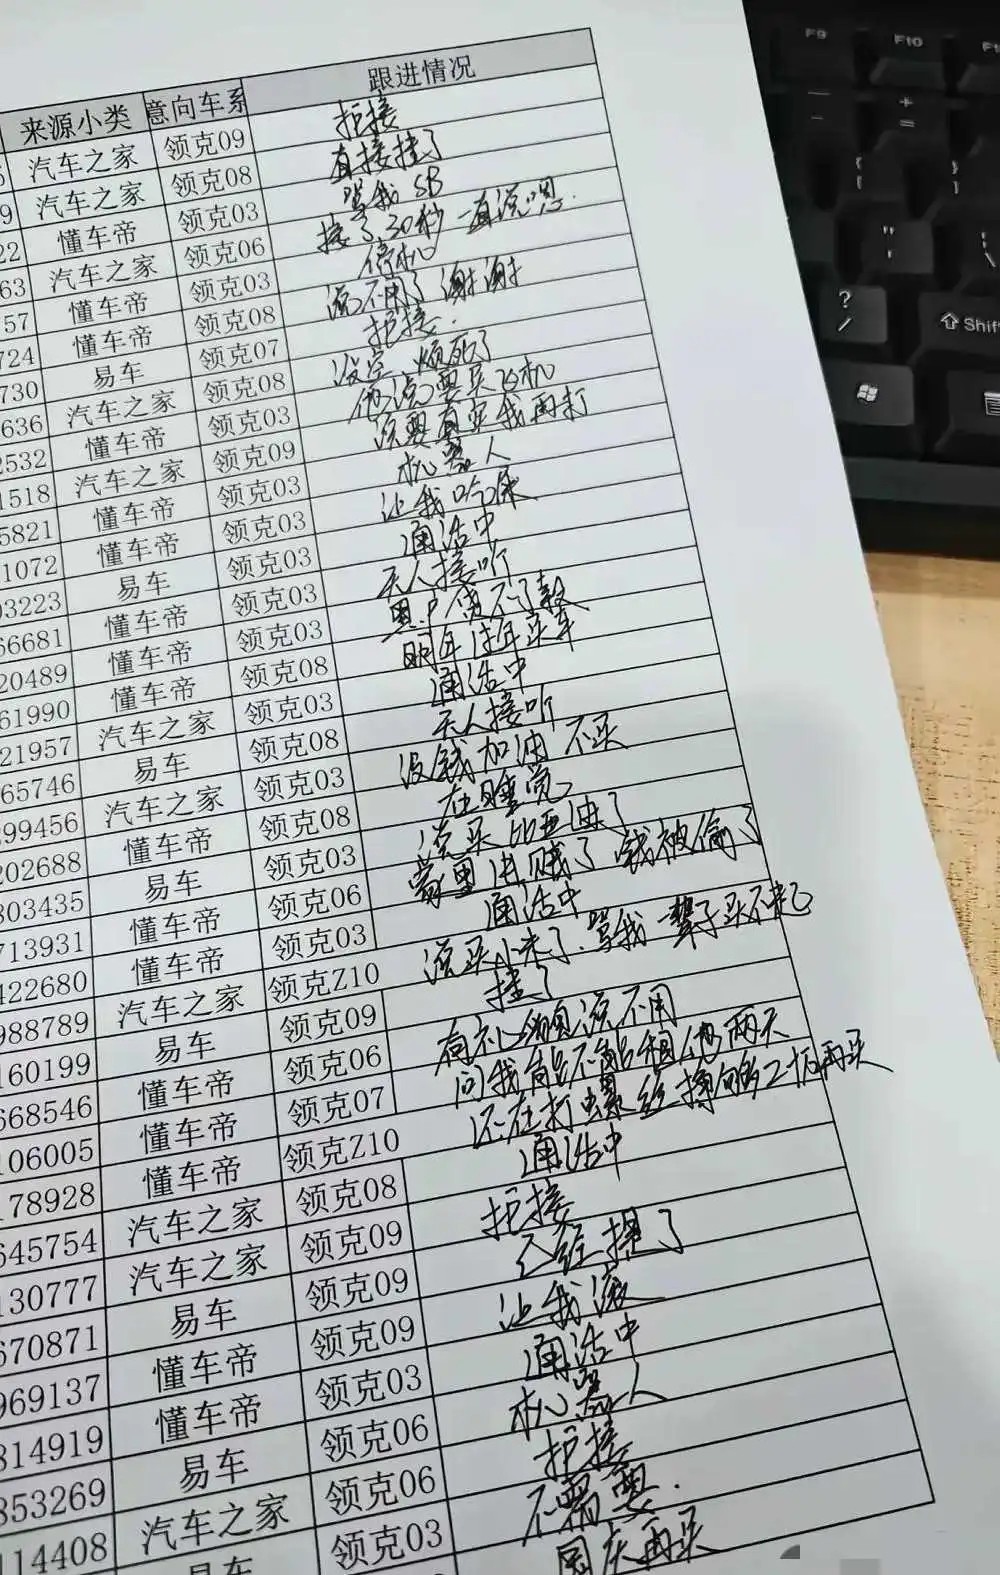 来源小类 意向车系 跟进情况
汽车之家 领克09 拒接
9 汽车之家 领克08 直接挂了
22 懂车帝 领克03 骂我SB
63 汽车之家 领克06 接了30秒一直说嗯.
57 懂车帝 领克03 停机
724 懂车帝 领克08 说不用了谢谢
730 易车 领克07 拒接.
636 汽车之家 领克08 没空,烦死了
2532 懂车帝 领克03 他说要买飞机
1518 汽车之家 领克09 须要真实我再打
5821 懂车帝 领克03 机器人
1072 懂车帝 领克03 让我吃屎
03223 易车 领克03 通话中
66681 懂车帝 领克03 无人接听
20489 懂车帝 领克03 黑户贷不了款
61990 懂车帝 领克08 明年过年买车
21957 汽车之家 领克03 通话中
65746 易车 领克08 无人接听
99456 汽车之家 领克03 没钱加油 不买
202688 懂车帝 领克08 在睡觉
803435 易车 领克03 说买比亚迪了
713931 懂车帝 领克06 家里进贼了 钱被偷了
422680 懂车帝 领克03 通话中
988789 汽车之家 领克Z10 说买小米了.骂我一辈子买不起
160199 易车 领克09 挂了
668546 懂车帝 领克06 有礼貌说不用
106005 懂车帝 领克07 问我能不能租他两天
178928 懂车帝 领克Z10 还在打螺丝攒够工资再买
645754 汽车之家 领克08 通话中
130777 汽车之家 领克09 拒接
670871 易车 领克09 已经提了
969137 懂车帝 领克09 让我滚
814919 懂车帝 领克03 通话中
853269 易车 领克06 机器人
114408 汽车之家 领克06 拒接
易车 领克03 不需要.
国庆再买
F9 F10
? /
Shif